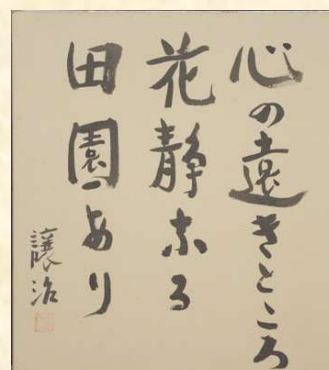 心の遠きところ
花静なる
田園あり
譲治